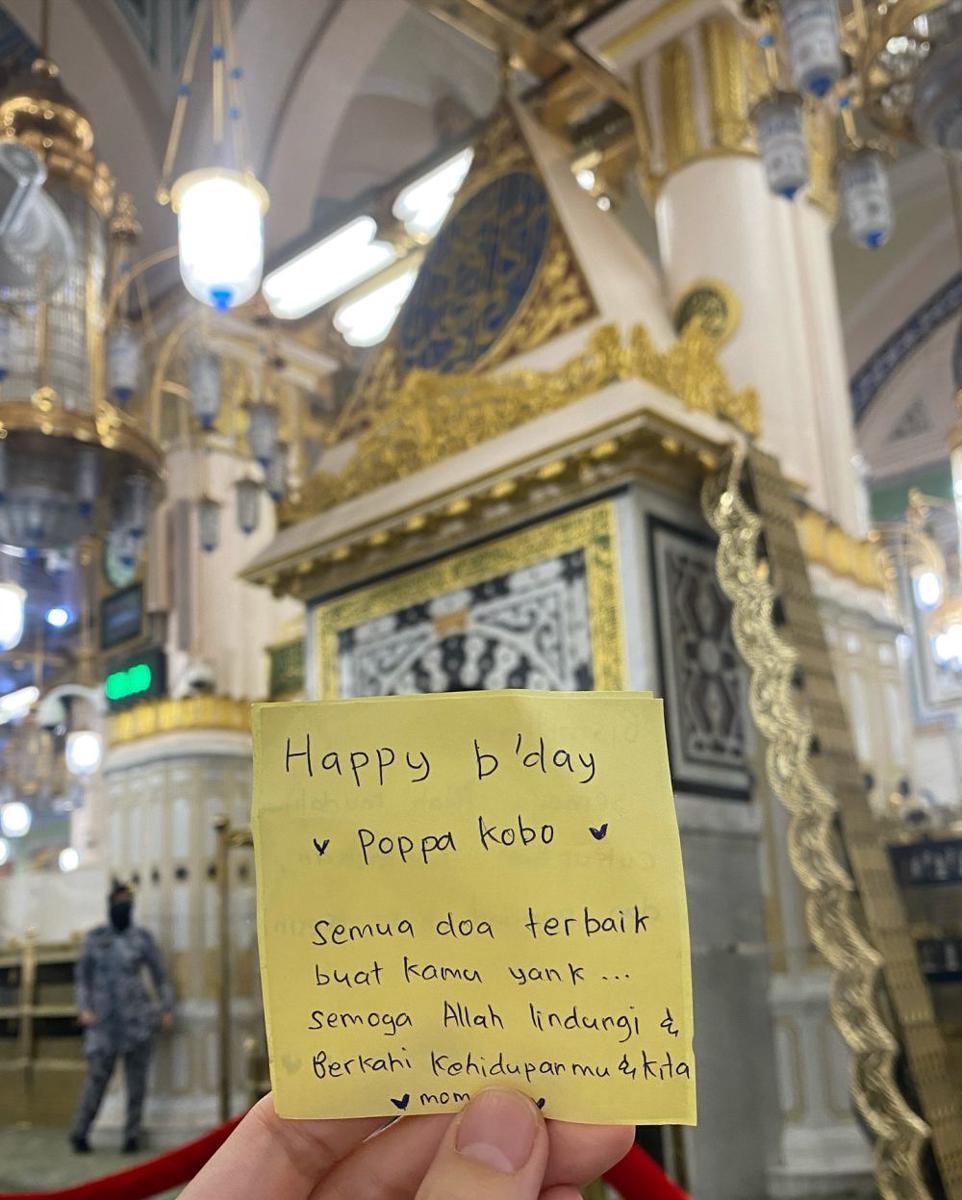 Happy b'day
Poppa Kobo
semua doa terbaik
buat kamu yank ...
semoga Allah lindungi &
Berkahi Kehidupanmu & kita
mom